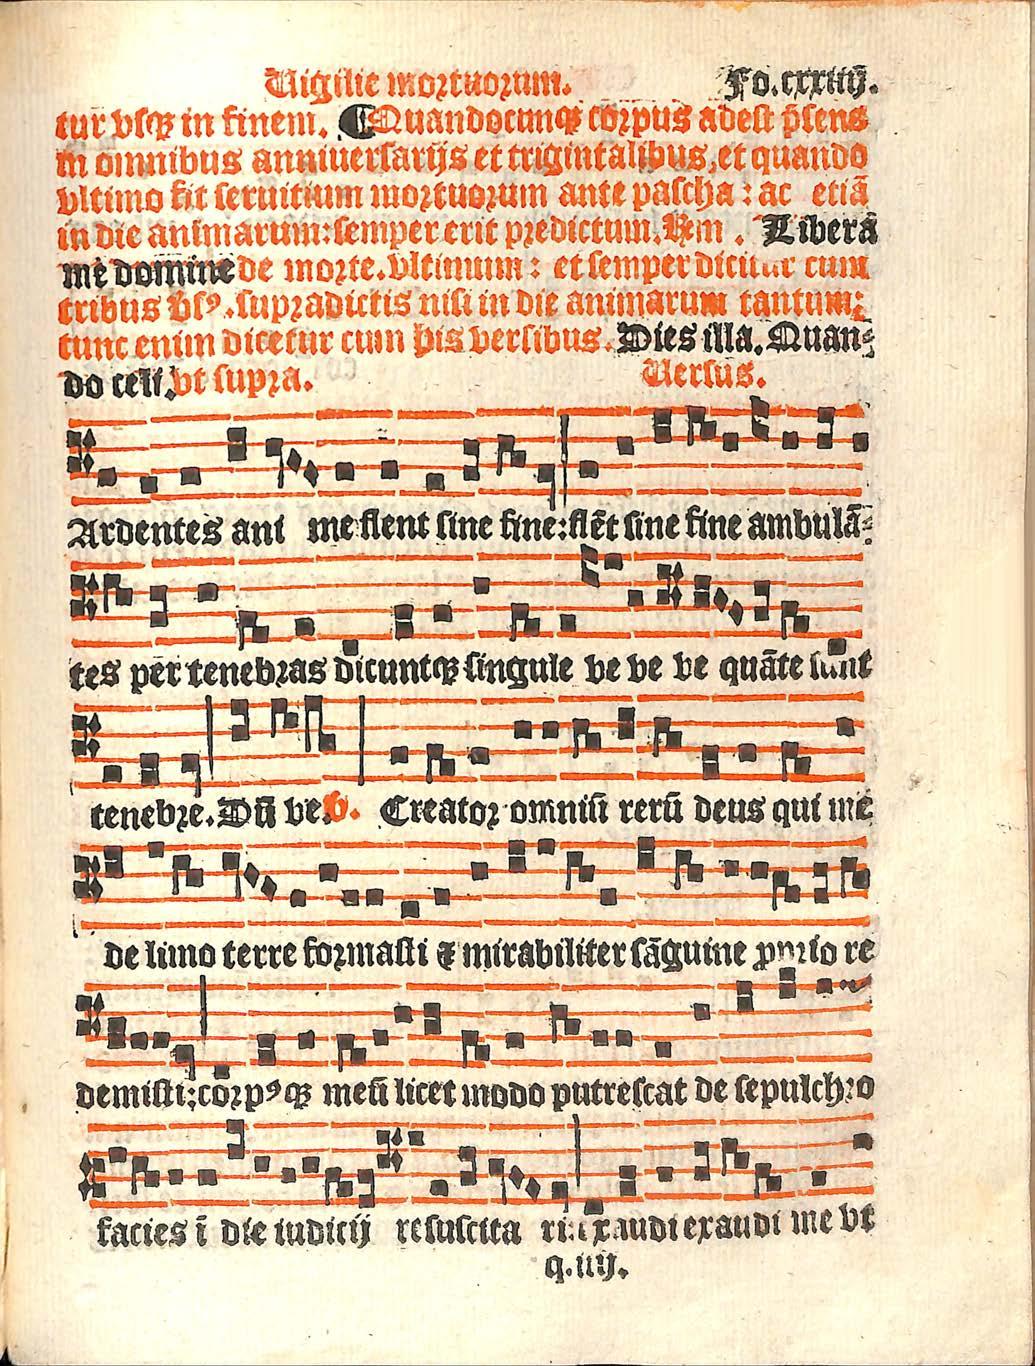 Uigilie mortuorum. Fo.cxxiiij.
tur vsqꝫ in finem. ¶Quandocunqꝫ corpus adest p̄sens
in omnibus anniuersarijs et trigintalibus,et quando
vltimo fit seruitium mortuorum ante pascha: ac etiā
in die animarum:semper erit predictum.℞m . Liberā
me domine de morte.vltimum: et semper dicitur cum
tribus v̄sꝰ.supradictis nisi in die animarum tantum:
tunc enim dicetur cum his versibus. Dies illa. Quan-
do celi.vt supra. Uersus.
Ardentes ani me flent sine fine:flēt sine fine ambulā-
tes per tenebras dicuntqꝫ singule ve ve ve quāte sunt
tenebre. Dū ve. ℣. Creator omniū rerū deus qui me
de limo terre formasti ⁊ mirabiliter sāguine ꝓprio re
demisti:corpꝰqꝫ meū licet modo putrescat de sepulchro
facies ī die iudicij resuscita ri:exaudi exaudi me vt
q.iiij.